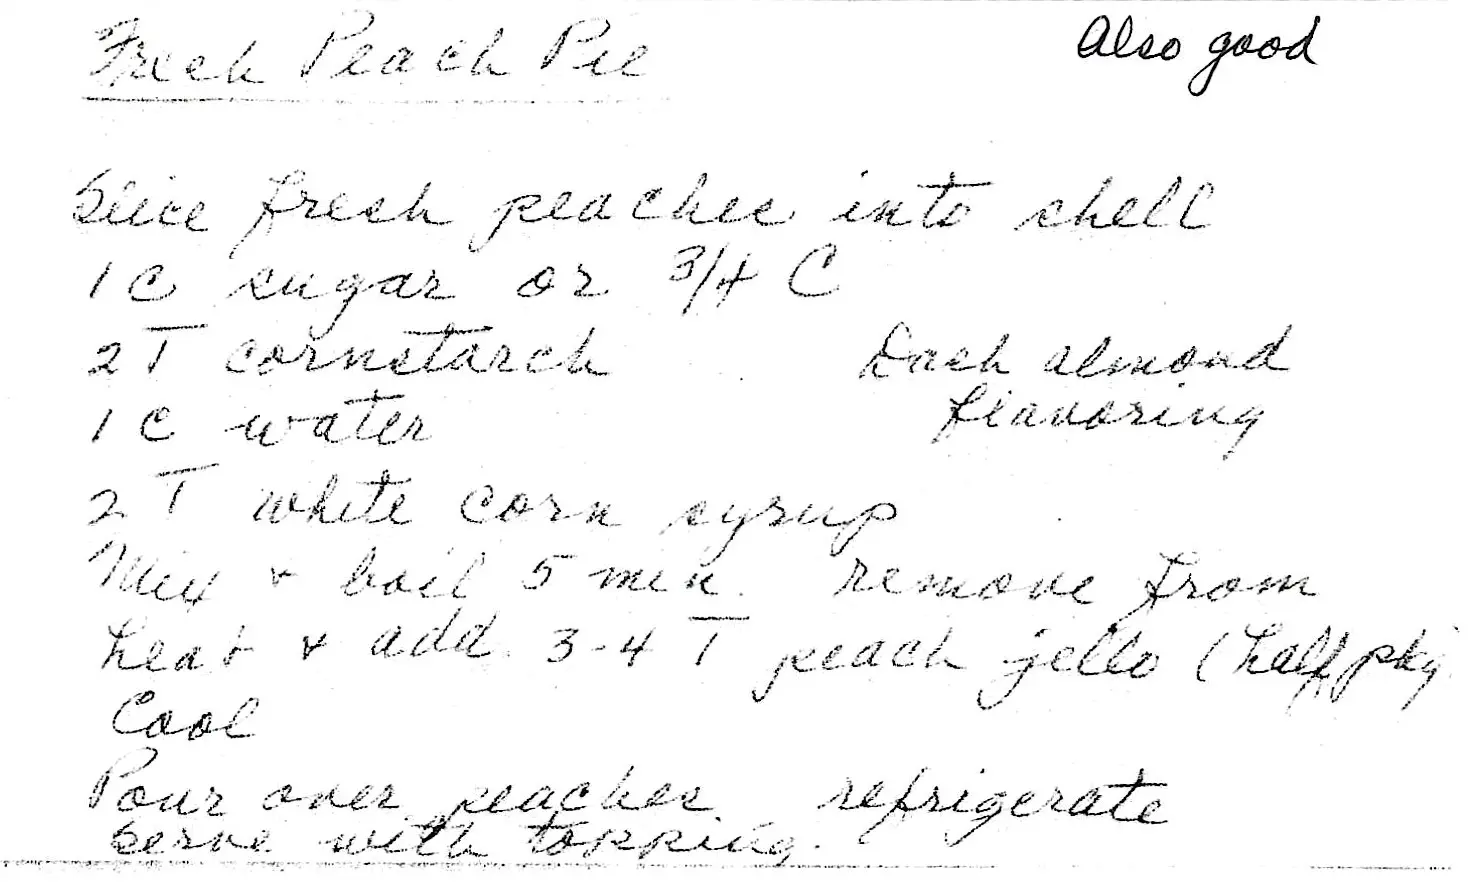 Fresh Peach Pie
Also good
Slice fresh peaches into shell
1 C sugar or 3/4 C
2 T cornstarch
Dash almond
flavoring
1 C water
2 T white corn syrup
Mix + boil 5 min. remove from
heat + add 3-4 T peach jello (half pkg.
Cool
Pour over peaches refrigerate
Serve with topping.